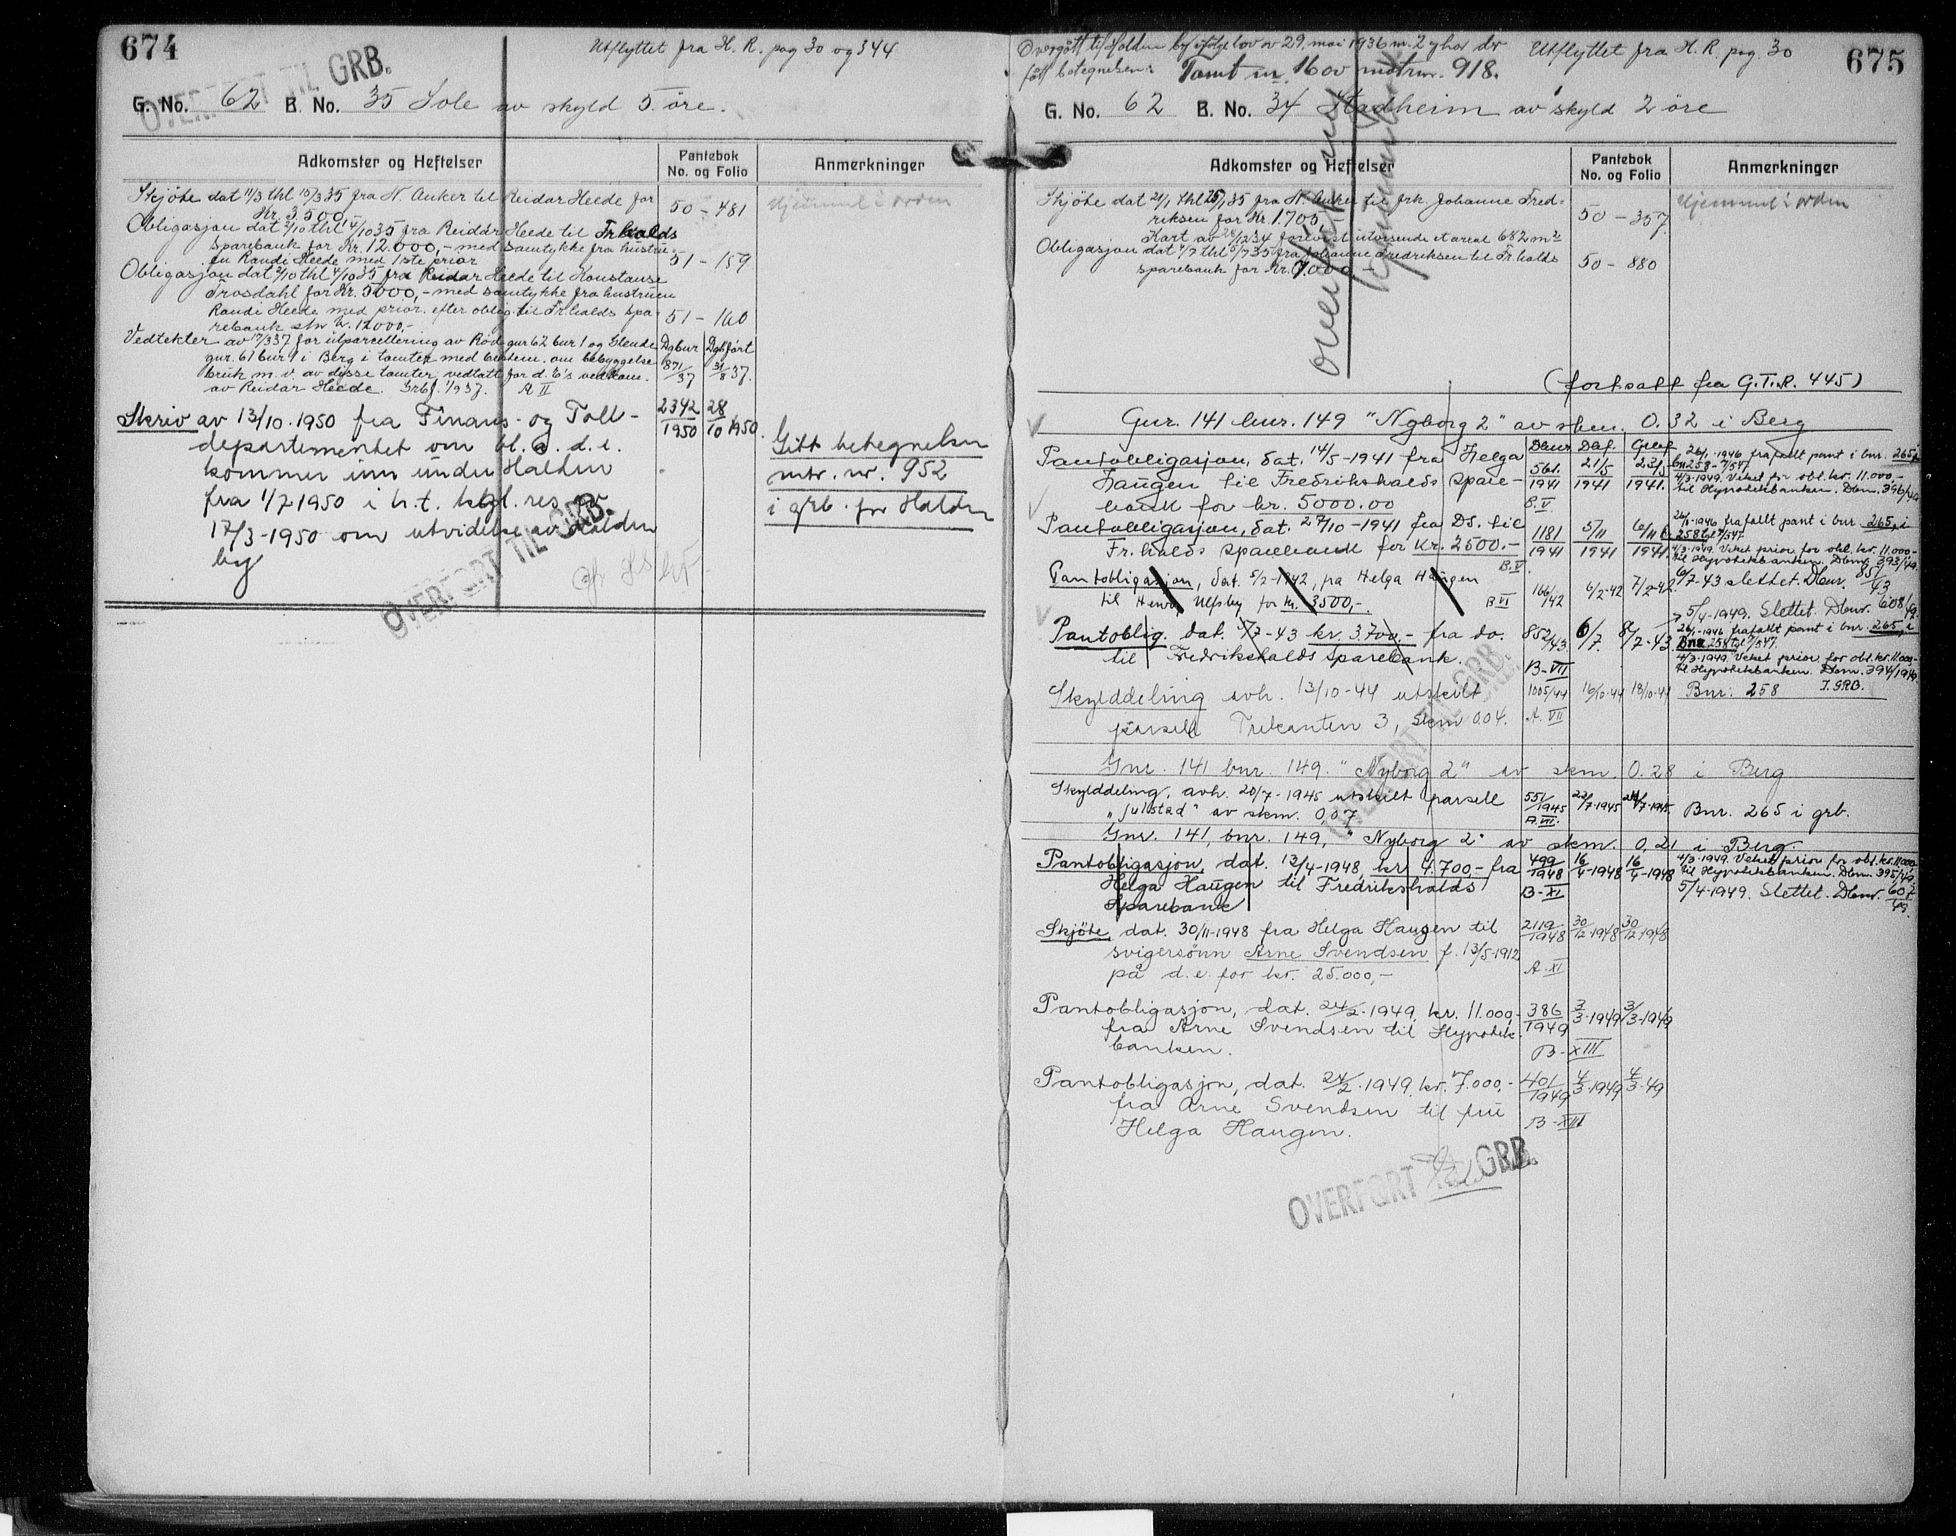 674
Utflyttet fra H. R. pag 30 og 344
OVERFØRT TIL GRB.
G. No. 62 B. No. 35 Sole av skyld 5 øre.
Adkomster og Heftelser Pantebok No. og Folio Anmerkninger
Skjöte dat 11/3 thl 15/3 35 fra N. Anker til Reidar Heede for 50 - 481 Hjemmel i orden
Kr. 3.500
Obligasjon dat 2/10 thl 4/10 35 fra Reidar Heede til Fr.halds
sparebank for Kr. 12.000,- med samtykke fra hustru-
en Randi Heede med 1ste prior 51 - 159
Obligasjon dat 2/10 thl 4/10 35 fra Reidar Heede til Konstanse
Trosdahl for Kr. 5000,- med samtykke fra hustruen
Randi Heede med prior. efter oblig. til Fr.halds spa-
rebank str. kr. 12000,- 51 - 160
Vedtekter av 17/3 37 for utparcellering av Röd gnr 62 bnr 1 og Glende Dgbnr Dgbført
gnr. 61 bnr 1 i Berg i tomter med bestem. om bebyggelse 871/37 31/8 37.
bruk m. v. av disse tomter, vedtatt for d. E's vedkom.
av Reidar Heede. Grbf. 1/9 37. A II
Skriv av 13/10. 1950 fra Finans- og Toll- 2342/1950 28/10 1950.
departementet om bl. a. d. e.
kommer inn under Halden
fra 1/7 1950 i h.t. kgl. res. av
17/3-1950 om utvidelse av Halden
by
Gitt betegnelsen
mtr. nr. 952
i grb. for Halden
OVERFØRT TIL GRB.
675
Overgått til Halden by ifølge lov av 29. mai 1936 nr. 2 og har der
fått betegnelsen: Tomt nr. 16 av matr nr. 918.
Utflyttet fra H. R. pag. 30
G. No. 62 B. No. 34 Stadheim av skyld 2 øre
Adkomster og Heftelser Pantebok No. og Folio Anmerkninger
Skjöte dat 21/1 thl 25/1 35 fra N. Anker til frk Johanne Fred- Hjemmel i orden
riksen for Kr. 1705 50 - 357
Kart av 28/12 34 forevist utvisende et areal 682 m²
Obligasjon dat 4/7 thl 5/7 35 fra Johanne Fredriksen til Fr.halds
sparebank for Kr. 7.000 - 50 - 880
(fortsatt fra G.T.R. 445)
Gnr. 141 bnr. 149 "Nyborg 2" av skm. 0.32 i Berg
Pantobligasjon, dat. 14/5-1941 fra Helga
Haugen til Fredrikshalds Spare-
bank for kr. 5000.00
Dbnr 561/1941 B.V Daf. 21/5 1941 Grbf 23/5 1941.
26/1-1946 frafallt pant i bnr. 265 i
bnr 258 - 7/547.
4/3-1949. Veket for obl. kr. 11.000,-
til Hypotekbanken. Dbnr. 396/49
Pantobligasjon, dat. 27/10-1941 fra Ds. til
Fr.halds sparebank for kr. 2500.-
1181/1941 B.V 5/11 1941 6/11 1941.
26/1-1946 frafallt pant i bnr. 265, i
258 7/547.
4/3-1949. Veket prior for obl. kr. 11.000-
til Hypotekbanken. Dbnr. 393/49
Pantobligasjon, dat. 5/2-1942, fra Helga Haugen
til Henry Ulfsby for kr. 3500,-. B VI
166/42 6/2-42 7/2-42.
6/7-43 slettet. Dbnr. 851/43
Pantoblig. dat. 1/7-43 kr. 3.700,- fra do.
til Fredrikshalds Sparebank.
852/43 B-VII 6/7. 8/7-43.
5/4-1949. Slettet. Dbnr. 608/49.
26/1-1946 frafallt pant i bnr. 265, i
Bnr 258 7/547.
4/3-1949. Veket prior for obl. kr. 11.000-
til Hypotekbanken. Dbnr. 394/1949.
Skylddeling avh. 13/10-44 utskilt
parsell Trekanten 3, skm 0.04.
1005/44 A. VII 16/10-44 18/10-44 Bnr. 258 I. GRB.
Gnr. 141 bnr. 149. "Nyborg 2" av skm. 0.28 i Berg
Skylddeling, avh. 20/7-1945 utskilt parsell
"Julstad" av skm. 0,07
551/1945 A.VII. 23/7-1945 24/7-1945. Bnr. 265 i grb.
Gnr. 141, bnr. 149, "Nyborg 2" av skm. 0,21 i Berg
Pantobligasjon, dat. 12/4-1948, kr. 4.700,- fra
Helga Haugen til Fredrikshalds
Sparebank
499/1948 B-XI 16/4-1948 16/4-1948
4/3-1949. Veket prior for obl. kr. 11.000
til Hypotekbanken. Dbnr. 395/49.
5/4-1949. Slettet. Dbnr. 607/49.
Skjöte, dat. 30/11-1948 fra Helga Haugen til
svigersønn Arne Svendsen f. 13/5-1912
på d.e. for kr. 25.000,-
2119/1948 A-XI 30/12-1948 30/12-1948
Pantobligasjon, dat. 24/2-1949, kr. 11.000,-
fra Arne Svendsen til Hypotek-
banken.
386/1949 B-XIII 3/3-1949 3/3-1949
Pantobligasjon, dat. 24/2-1949, kr. 7.000,-
fra Arne Svendsen til fru
Helga Haugen.
401/1949 B-XIII 4/3-1949 4/3-49
OVERFØRT TIL GRB.
OVERFØRT TIL GRB.